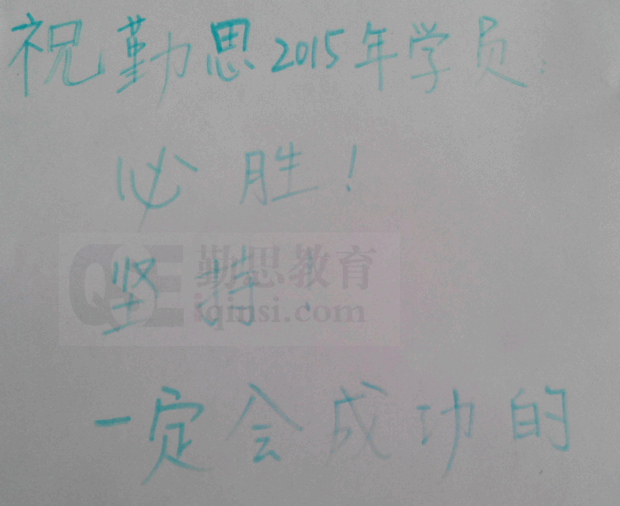 祝勤思2015年学员
必胜!
坚持!
一定会成功的
QE 勤思教育
iqinsi.com